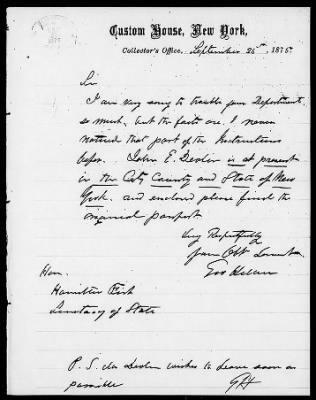 Custom House, New York,
Collector's Office, September 25th, 1875.
Sir
I am very sorry to trouble your Department
so much, but the facts are I never
noticed that part of the Instructions
before. John E. Devlin is at present
in the City County and State of New
York. and enclosed please find the
original passport
Very Respectfully
your Obt Servt
Geo
Hon.
Hamilton Fish
Secretary of State
P.S. Devlin wishes to leave soon as
possible GH